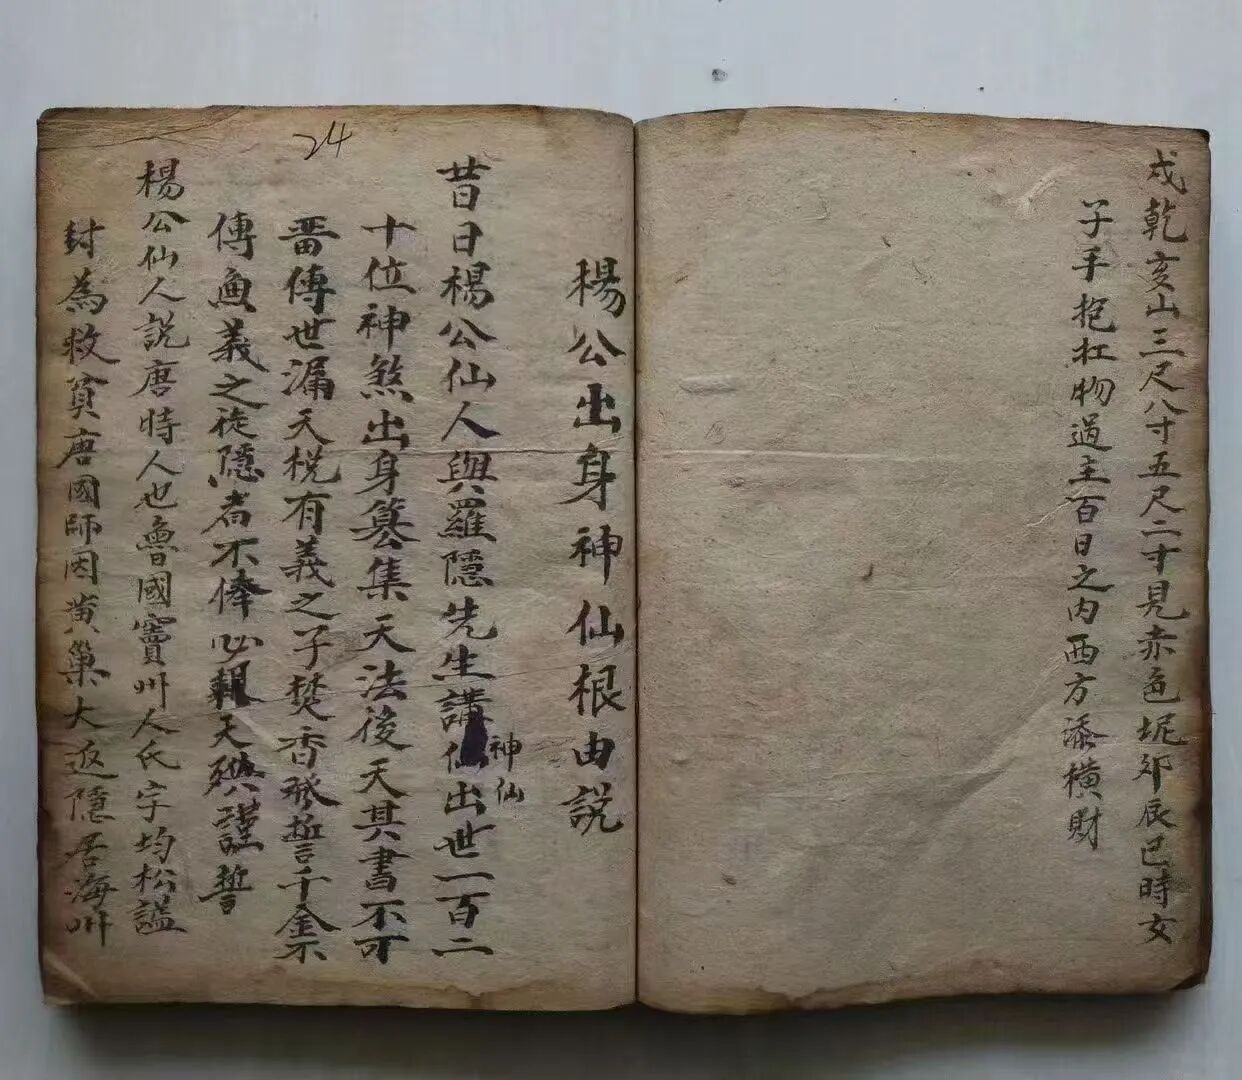 戌乾亥山三尺八寸五尺二寸見赤色坭卯辰巳時女
子手抱扛物過主百日之内西方添橫財
楊公出身神仙根由説
昔日楊公仙人與羅隱先生講仙出世一百二
神仙
十位神煞出身篡集天法後天其書不可
畨傳世漏天梲有義之子焚香發誓千金不
傳無義之徒隱者不俸必報天殃謹誓
楊公仙人説唐時人也魯國竇州人氏字均松謚
封為救貧唐國師因黄巢大返隱居海州
24